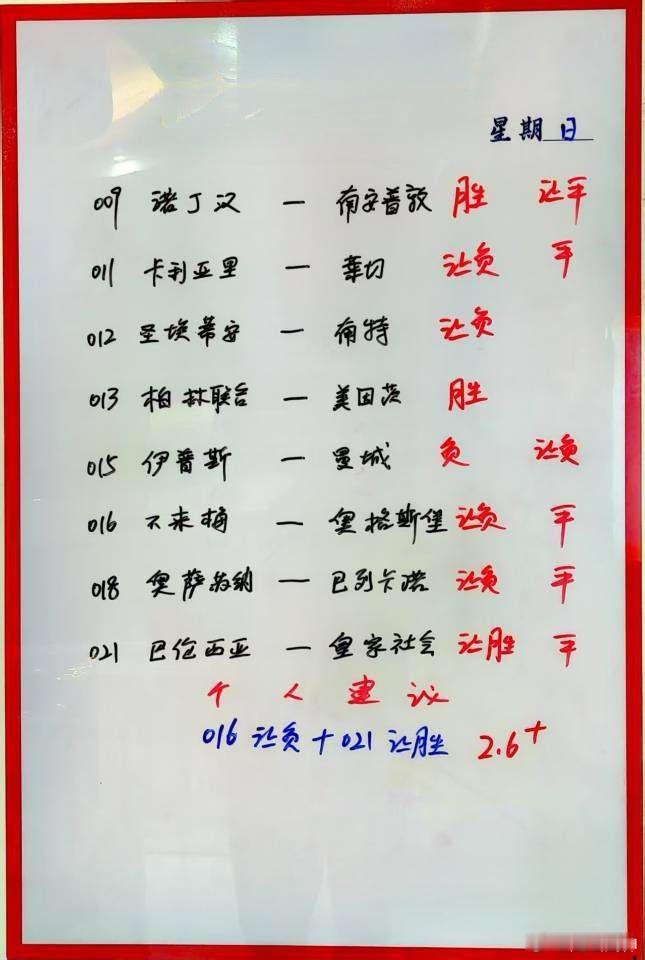 星期日
009 诺丁汉 — 南安普敦 胜 让平
011 卡利亚里 — 莱切 让负 平
012 圣埃蒂安 — 南特 让负
013 柏林联合 — 美因茨 胜
015 伊普斯 — 曼城 负 让负
016 不来梅 — 奥格斯堡 让负 平
018 奥萨苏纳 — 巴列卡诺 让负 平
021 巴伦西亚 — 皇家社会 让胜 平
个人建议
016 让负 + 021 让胜 2.6+